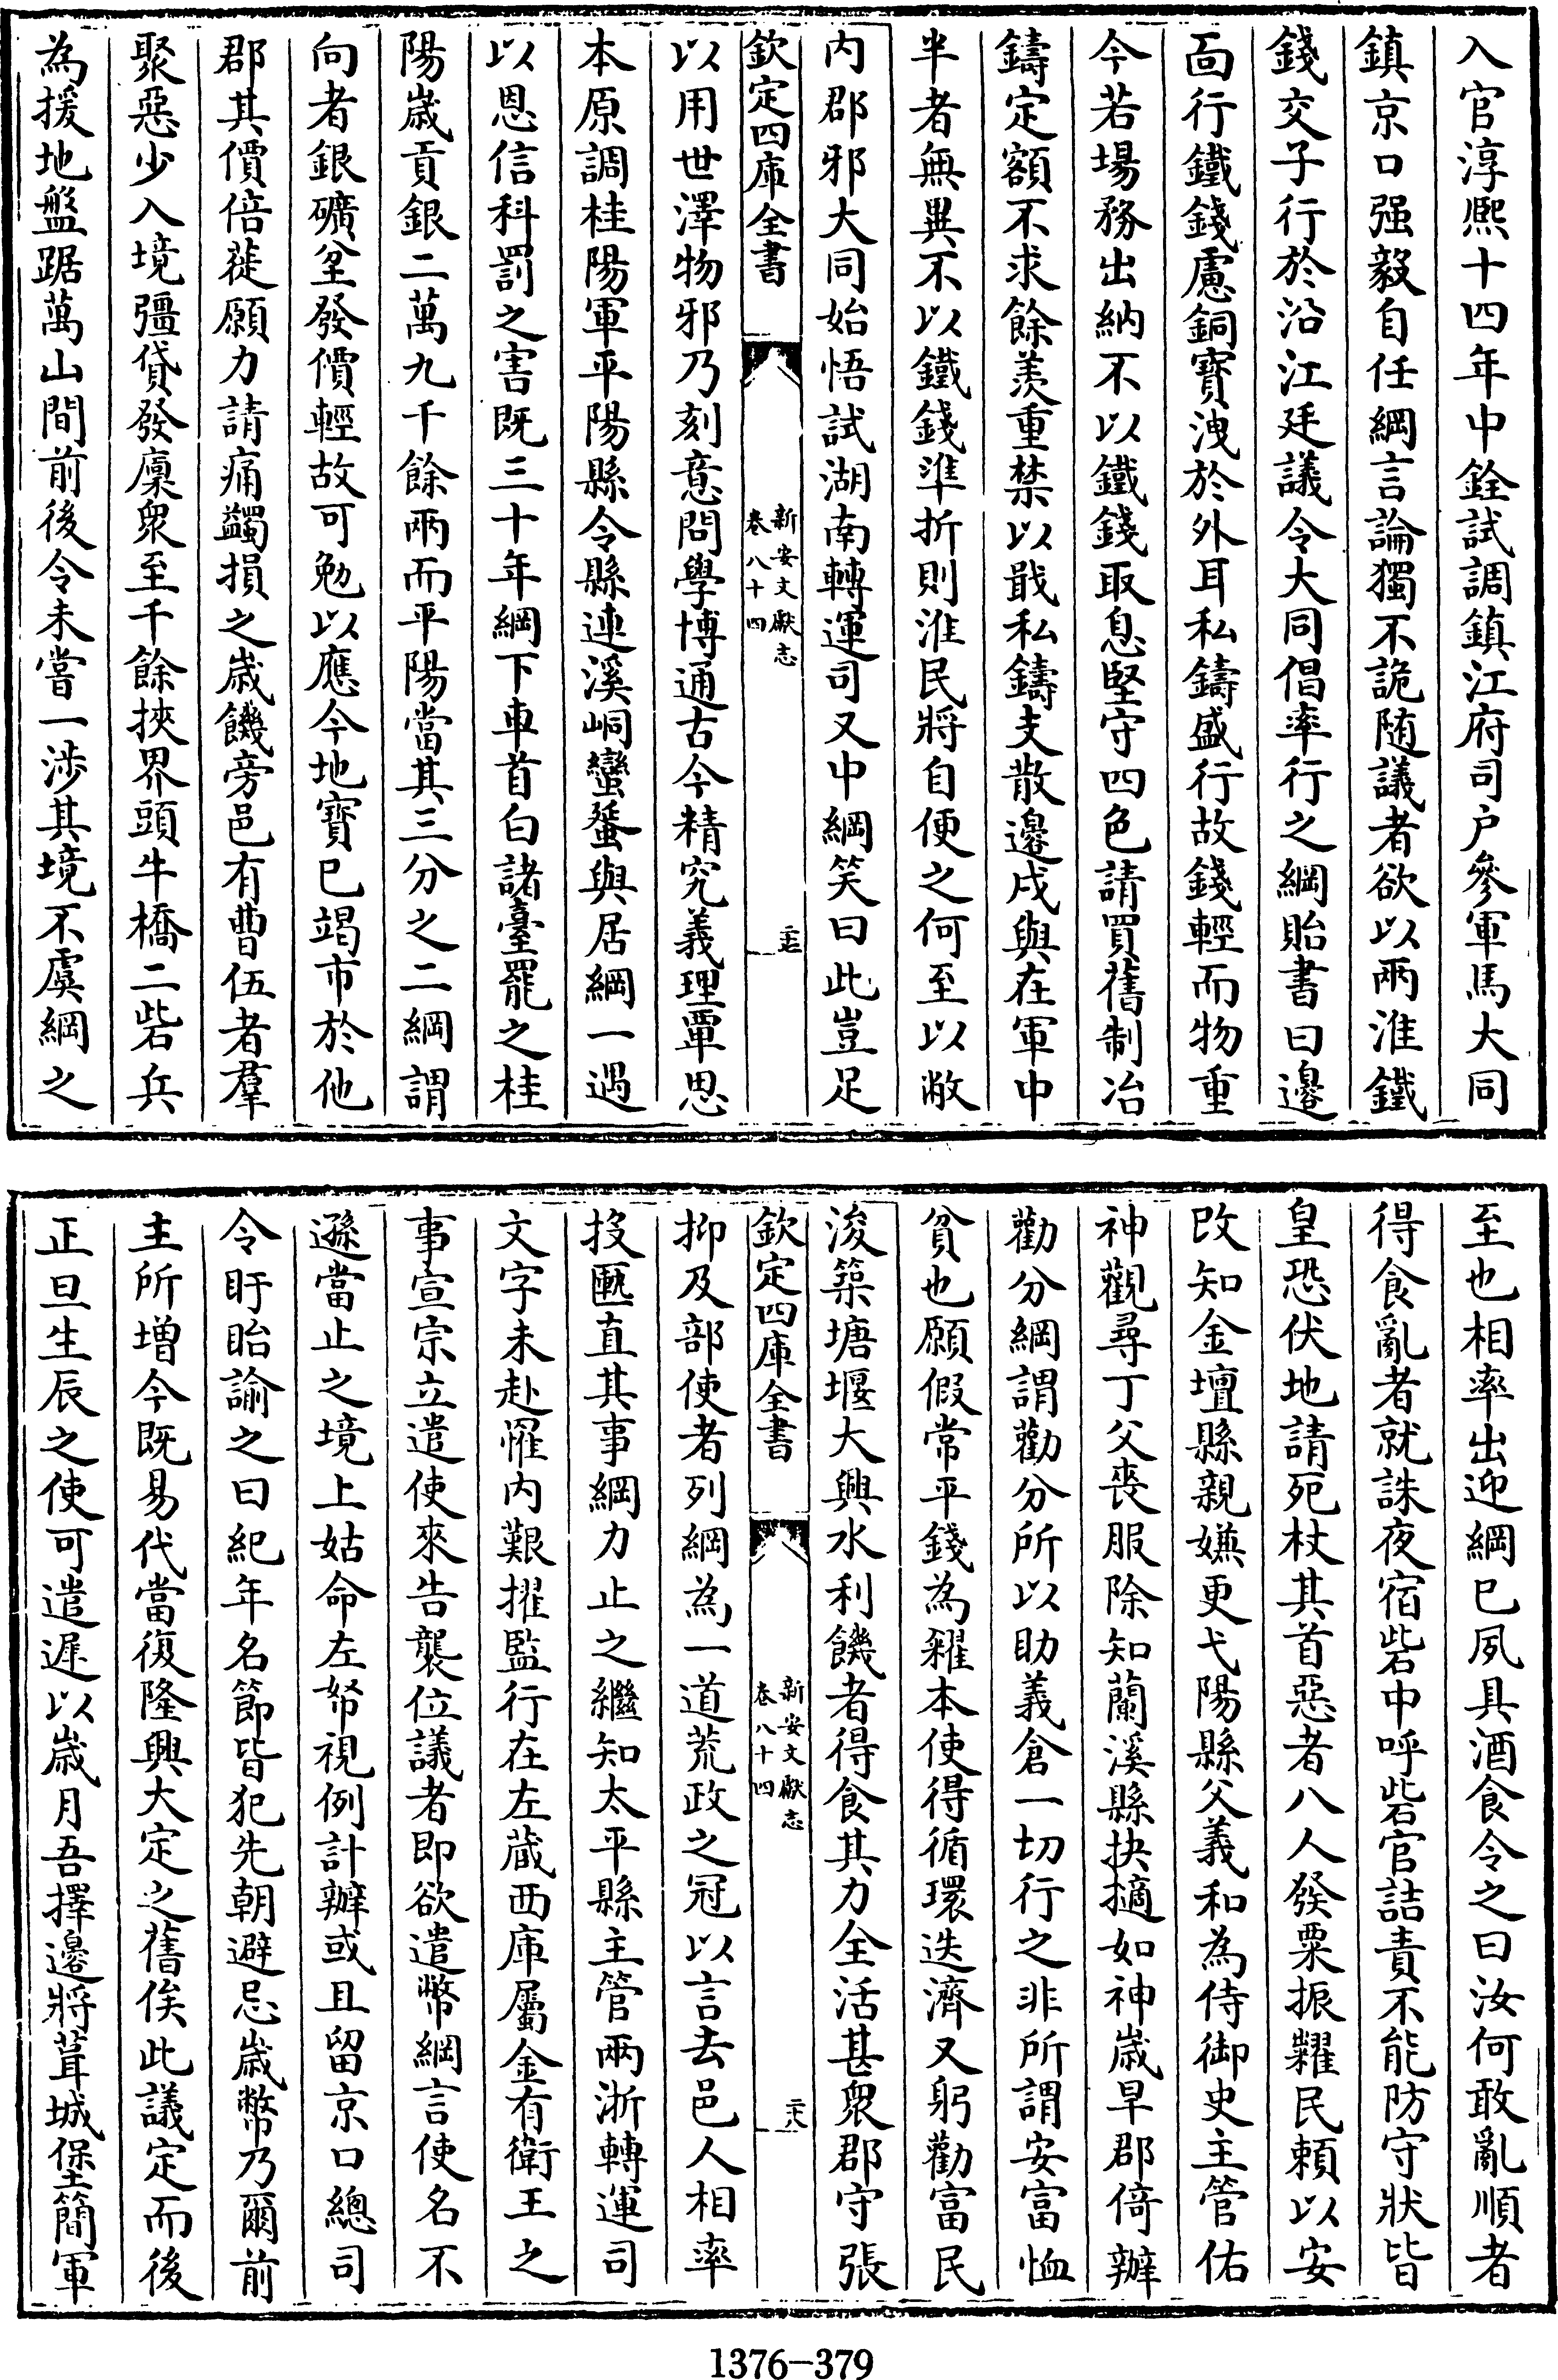 入官淳熈十四年中銓試調鎮江府司户參軍馬大同
鎮京口强毅自任綱言論獨不詭随議者欲以兩淮鐵
錢交子行於沿江廷議令大同倡率行之綱貽書曰邉
面行鐵錢慮銅寳洩於外耳私鑄盛行故錢輕而物重
今若場務出納不以鐵錢取息堅守四色請買舊制冶
鑄定額不求餘羨重禁以戢私鑄支散邉戍與在軍中
半者無異不以鐵錢準折則淮民將自便之何至以敝
内郡邪大同始悟試湖南轉運司又中綱笑曰此豈足
欽定四庫全書
新安文獻志
卷八十四
二十七
以用世澤物邪乃刻意問學博通古今精究義理覃思
本原調桂陽軍平陽縣令縣連溪峒蠻蜑與居綱一遇
以恩信科罰之害既三十年綱下車首白諸臺罷之桂
陽嵗貢銀二萬九千餘兩而平陽當其三分之二綱謂
向者銀礦坌發價輕故可勉以應今地寳已竭市於他
郡其價倍蓰願力請痛蠲損之嵗饑旁邑有曹伍者羣
聚惡少入境彊貸發廪衆至千餘挾界頭牛橋二砦兵
為援地盤踞萬山間前後令未嘗一涉其境不虞綱之
至也相率出迎綱已夙具酒食令之曰汝何敢亂順者
得食亂者就誅夜宿砦中呼砦官詰責不能防守狀皆
皇恐伏地請死杖其首惡者八人發粟振糶民頼以安
改知金壇縣親嫌更弋陽縣父義和為侍御史主管佑
神觀尋丁父喪服除知蘭溪縣抉擿如神嵗旱郡倚辦
勸分綱謂勸分所以助義倉一切行之非所謂安富恤
貧也願假常平錢為糴本使得循環迭濟又躬勸富民
浚築塘堰大興水利饑者得食其力全活甚衆郡守張
欽定四庫全書
新安文獻志
卷八十四
二十八
抑及部使者列綱為一道荒政之冠以言去邑人相率
投匭直其事綱力止之繼知太平縣主管兩浙轉運司
文字未赴罹内艱擢監行在左藏西庫屬金有衛王之
事宣宗立遣使來告襲位議者即欲遣幣綱言使名不
遜當止之境上姑命左帑視例計辦或且留京口總司
令盱眙諭之曰紀年名節皆犯先朝避忌嵗幣乃爾前
主所增今既易代當復隆興大定之舊俟此議定而後
正旦生辰之使可遣遲以嵗月吾擇邉將葺城堡簡軍
1376-379